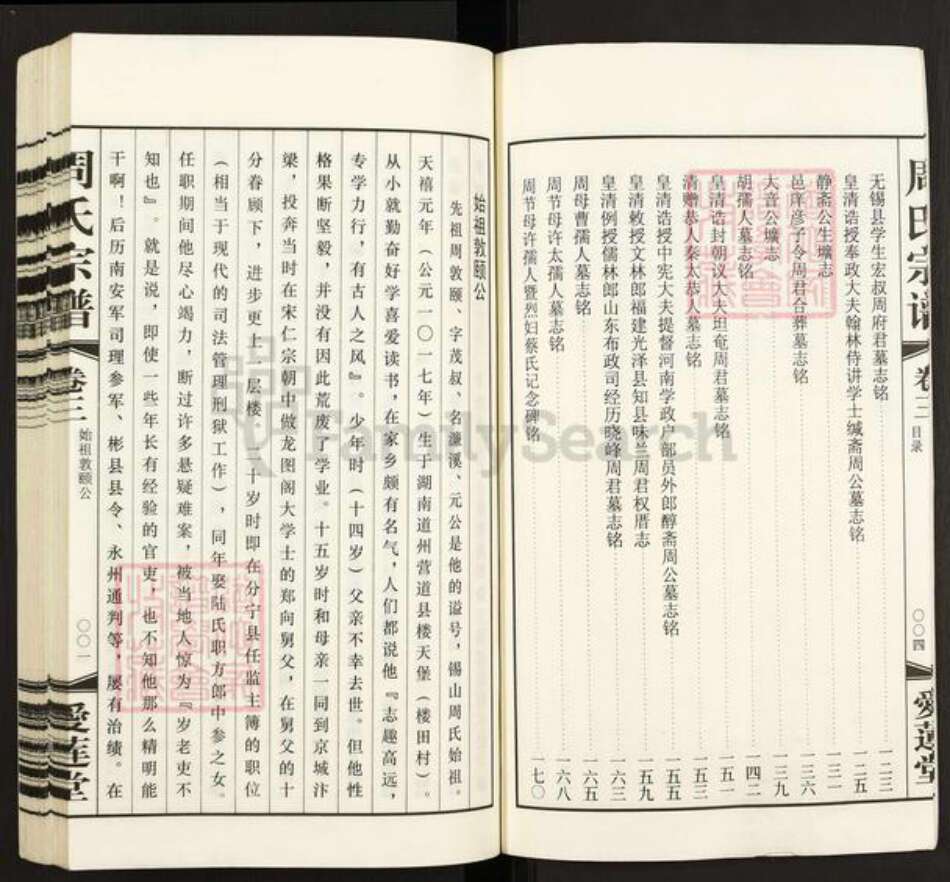 周氏宗谱
卷三
目录
〇〇四
爱莲堂
无锡县学生宏叔周府君墓志铭 一二三
皇清诰授奉政大夫翰林侍讲学士缄斋周公墓志铭 一二五
静斋公生圹志 一三一
邑庠彦子令周君合葬墓志铭 一三六
大音公圹志 一三九
胡孺人墓志铭 一四二
皇清诰封朝议大夫坦奄周君墓志铭 一五一
清赠恭人秦太恭人墓志铭 一五三
皇清诰授中宪大夫提督河南学政户部员外郎醇斋周公墓志铭 一五五
皇清敕授文林郎福建光泽县知县味兰周君权厝志 一五九
皇清例授儒林郎山东布政司经历晓峰周君墓志铭 一六三
周母曹孺人墓志铭 一六五
周节母许太孺人墓志铭 一六八
周节母许孺人暨烈妇蔡氏记念碑铭 一七〇
始祖敦颐公
先祖周敦颐、字茂叔、名濂溪、元公是他的谥号，锡山周氏始祖。
天禧元年（公元一〇一七年）生于湖南道州营道县楼天堡（楼田村）。
从小就勤奋好学喜爱读书，在家乡颇有名气，人们都说他『志趣高远，
专学力行，有古人之风』。少年时（十四岁）父亲不幸去世。但他性
格果断坚毅，并没有因此荒废了学业。十五岁时和母亲一同到京城汴
梁，投奔当时在宋仁宗朝中做龙图阁大学士的郑向舅父，在舅父的十
分眷顾下，进步更上一层楼。二十岁时即在分宁县任监主簿的职位
（相当于现代的司法管理刑狱工作），同年娶陆氏职方郎中参之女。
任职期间他尽心竭力，断过许多悬疑难案，被当地人惊为『岁老吏不
知也』。就是说，即使一些年长有经验的官吏，也不知他那么精明能
干啊！后历南安军司理参军、彬县县令、永州通判等，屡有治绩。在
周氏宗谱
卷三
始祖敦颐公
〇〇一
爱莲堂
FamilySearch